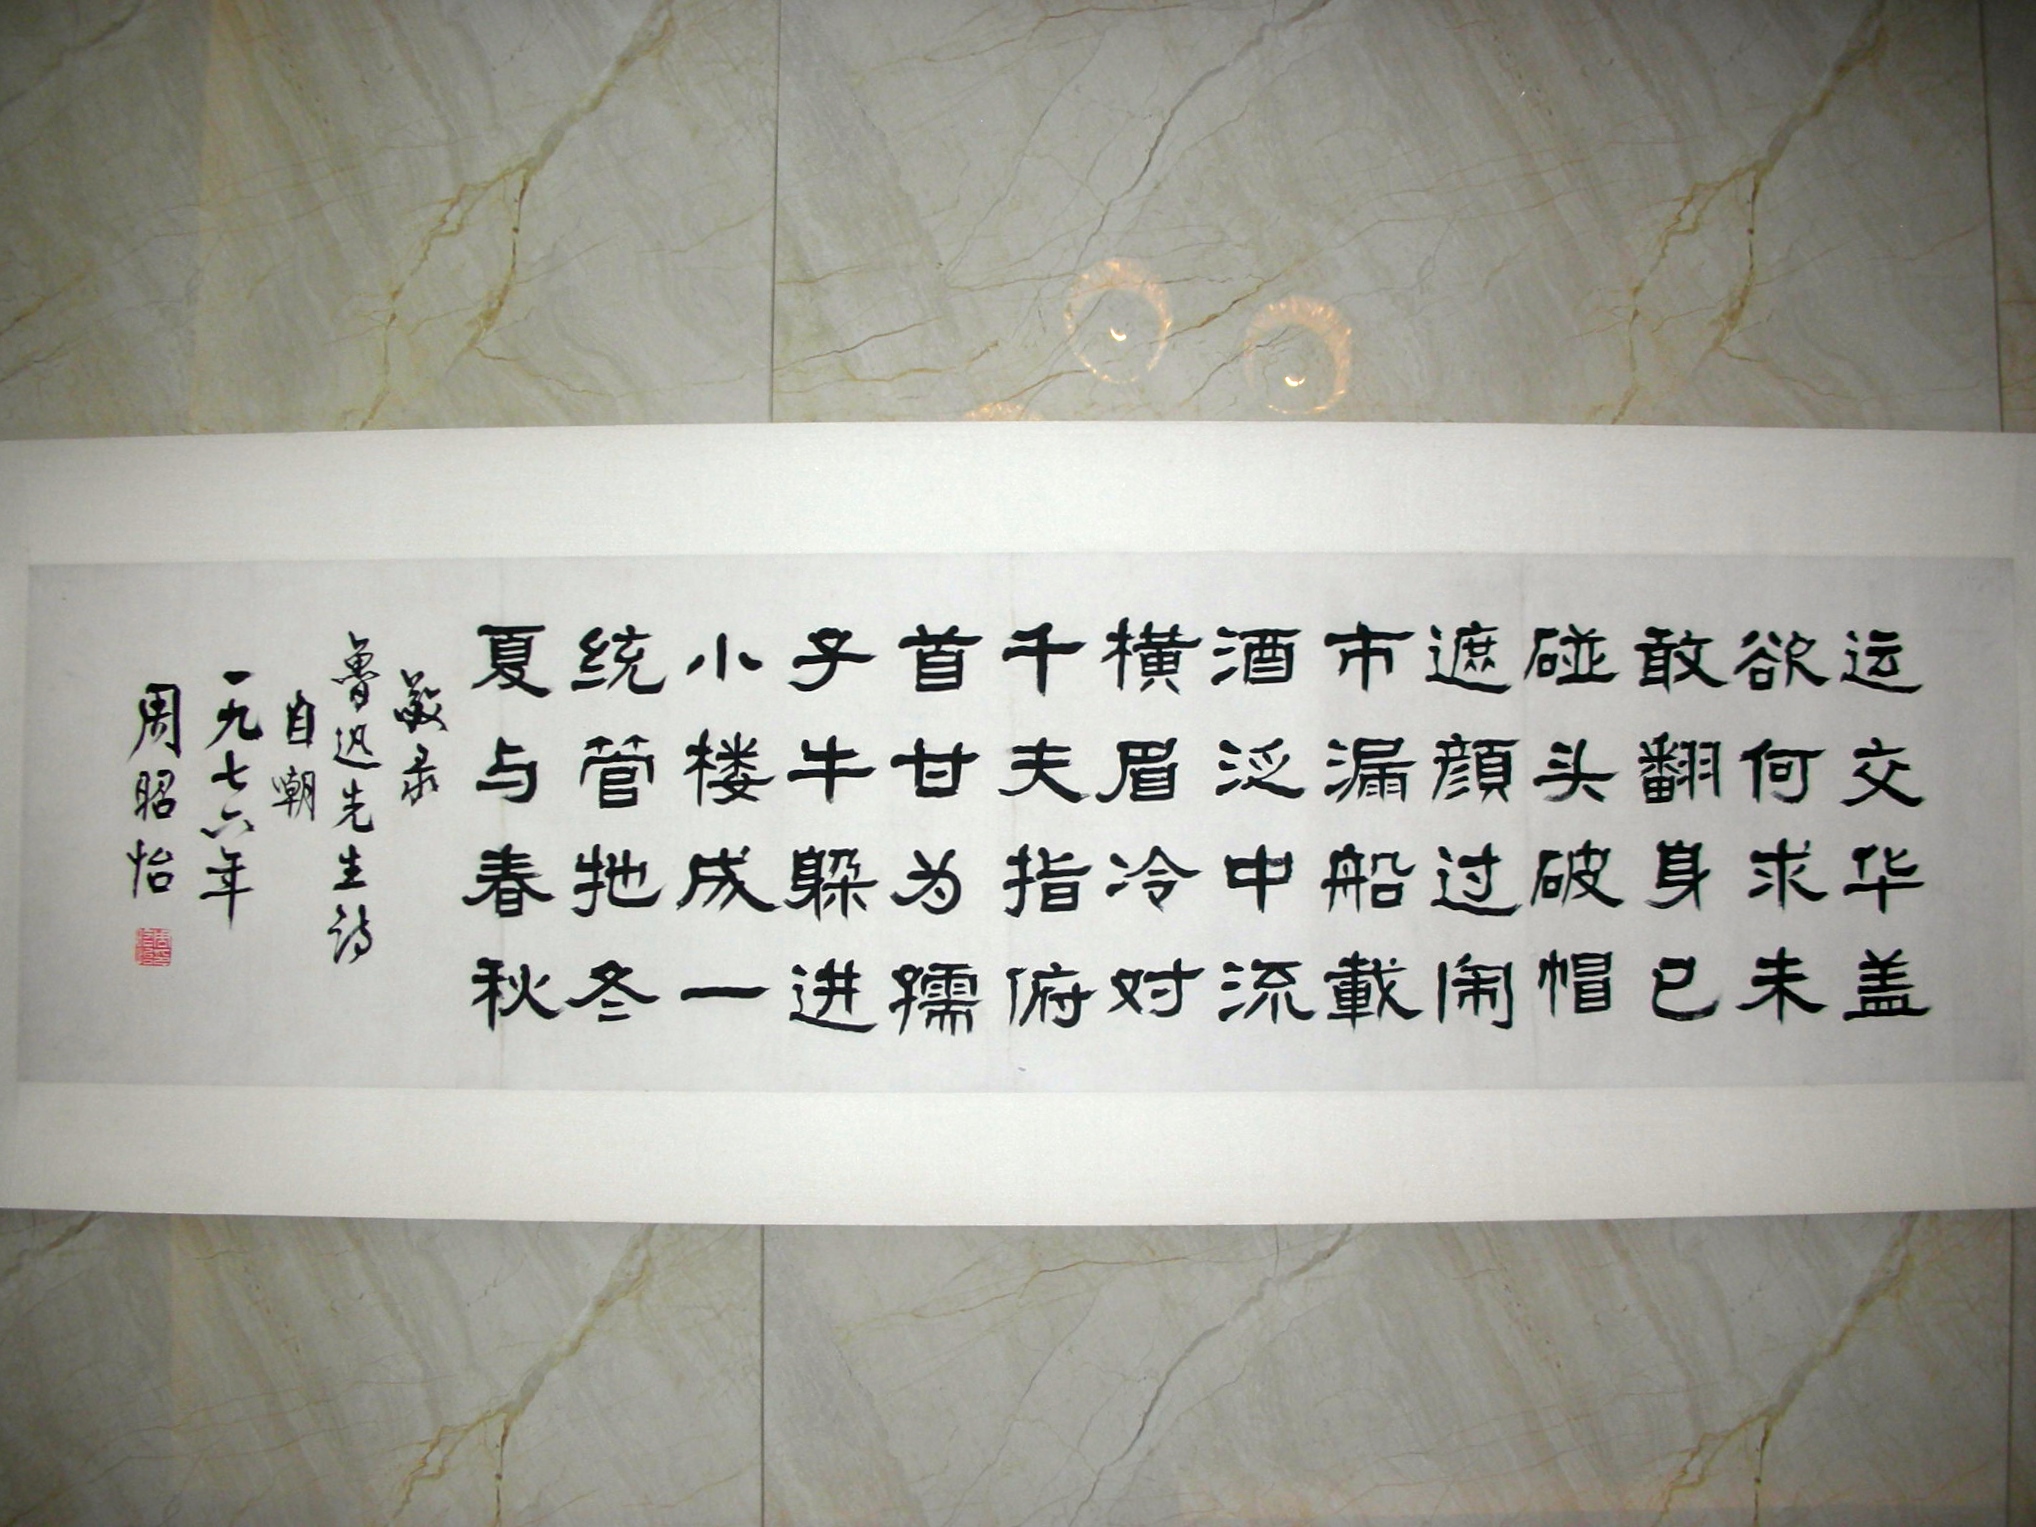 运交华盖
欲何求未
敢翻身已
碰头破帽
遮颜过闹
市漏船載
酒泛中流
横眉冷对
千夫指俯
首甘为孺
子牛躲进
小楼成一
统管牠冬
夏与春秋
敬录
鲁迅先生诗
自嘲
一九七六年
周昭怡